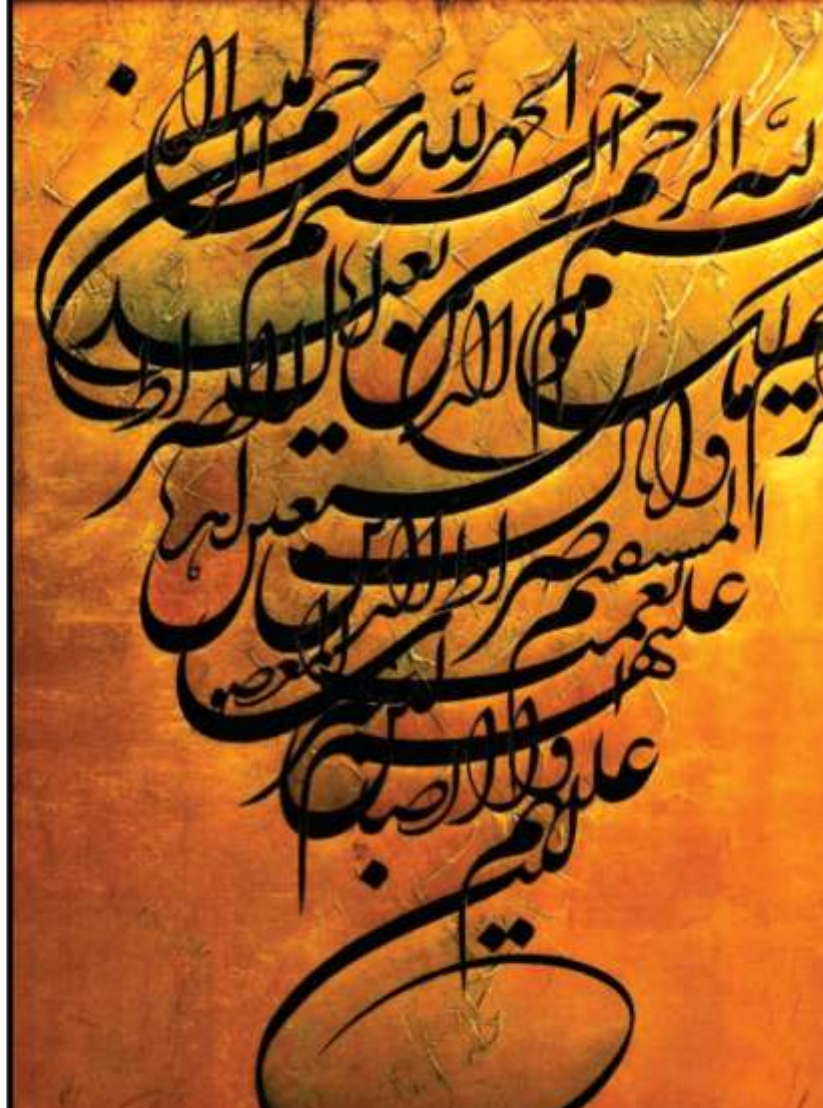 الله الرحمن الرحيم الحمد لله رب العلمين
الرحمن الرحيم ملك يوم الدين اياك نعبد
واياك نستعين اهدنا الصراط
المستقيم صراط الذين
انعمت عليهم غير المغضوب
عليهم ولا الضالين